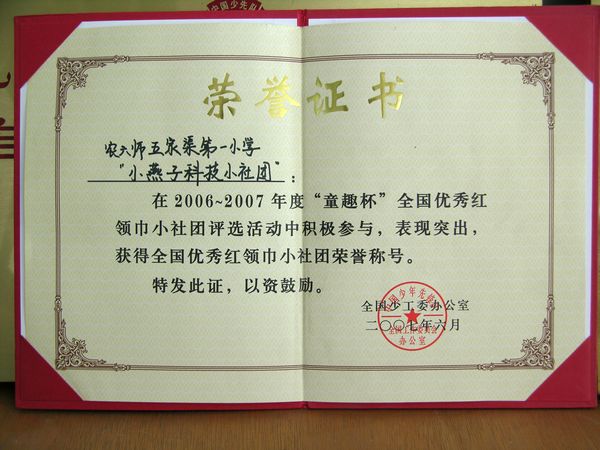 荣誉证书
农六师五家渠第一小学
“小燕子科技小社团”：
在 2006~2007 年度“童趣杯”全国优秀红
领巾小社团评选活动中积极参与，表现突出，
获得全国优秀红领巾小社团荣誉称号。
特发此证，以资鼓励。
全国少工委办公室
二〇〇七年六月
中国少年先锋队
全国工作委员会
办公室